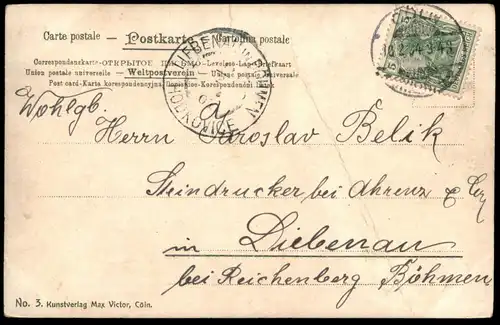 Carte postale — Postkarte — Cartolina postale
Correspondenzkarte-ОТКРЫТОЕ ПИСЬМО-Levelezo-Lap-Briefkaart
Union postale universelle — Weltpostverein — Unione postale universale
Post card-Karta korespondencyjna,
CÖLN
LIEBENAU IN BÖHMEN
HODKOVICE
Wohlgb.
Herrn Jaroslav Belik
Steindrucker bei Ahrenz & Cey
in Liebenau
bei Reichenberg Böhmen
No. 3. Kunstverlag Max Victor, Cöln.